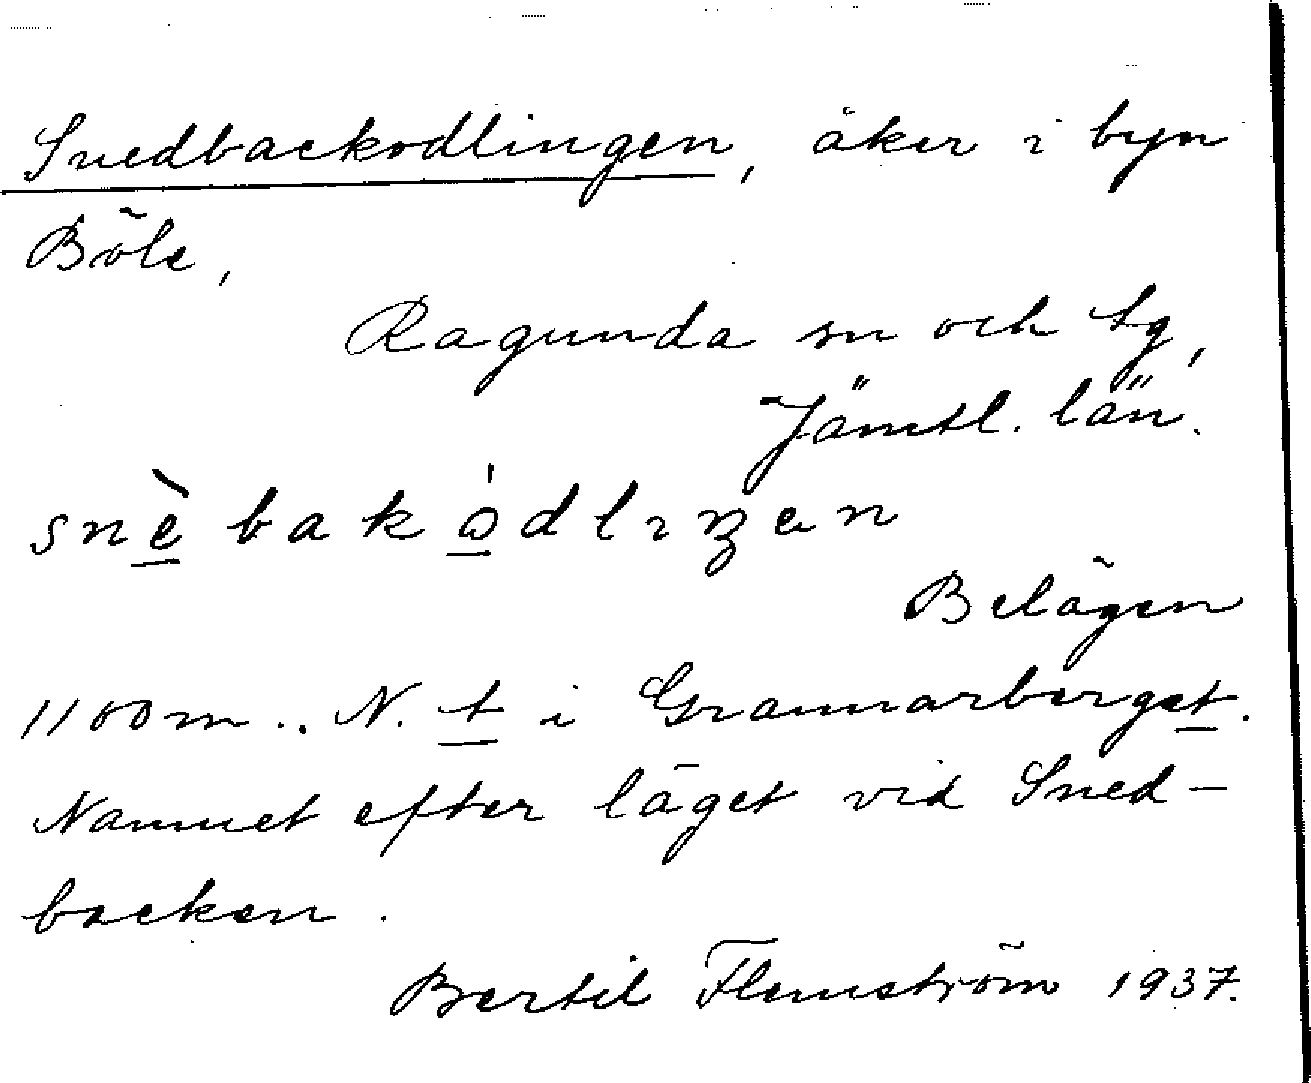 Snedbackodlingen, åker i byn
Böle,
Ragunda sn och tg,
Jämtl. län.
snè̱bakọ̀dlɩŋɐn
Belägen
1100 m .. N. t i Grannarberget.
Namnet efter läget vid Sned-
backen.
Bertil Flemström 1937.